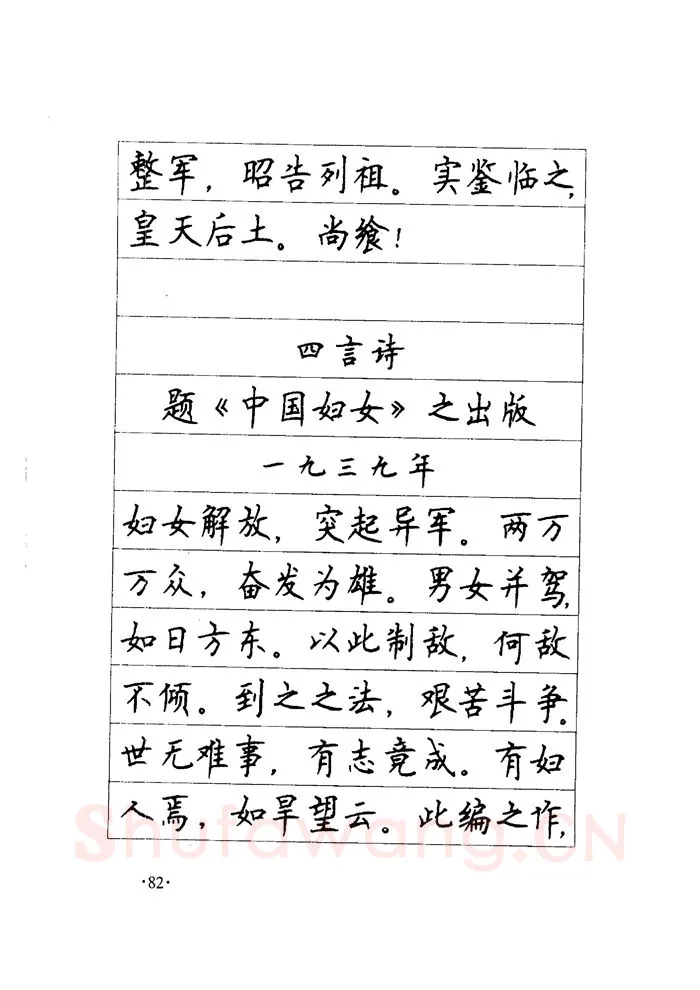 整军，昭告列祖。实鉴临之，
皇天后土。尚飨！
四言诗
题《中国妇女》之出版
一九三九年
妇女解放，突起异军。两万
万众，奋发为雄。男女并驾，
如日方东。以此制敌，何敌
不倾。到之之法，艰苦斗争。
世无难事，有志竟成。有妇
人焉，如旱望云。此编之作，
Shufawang.CN
·82·